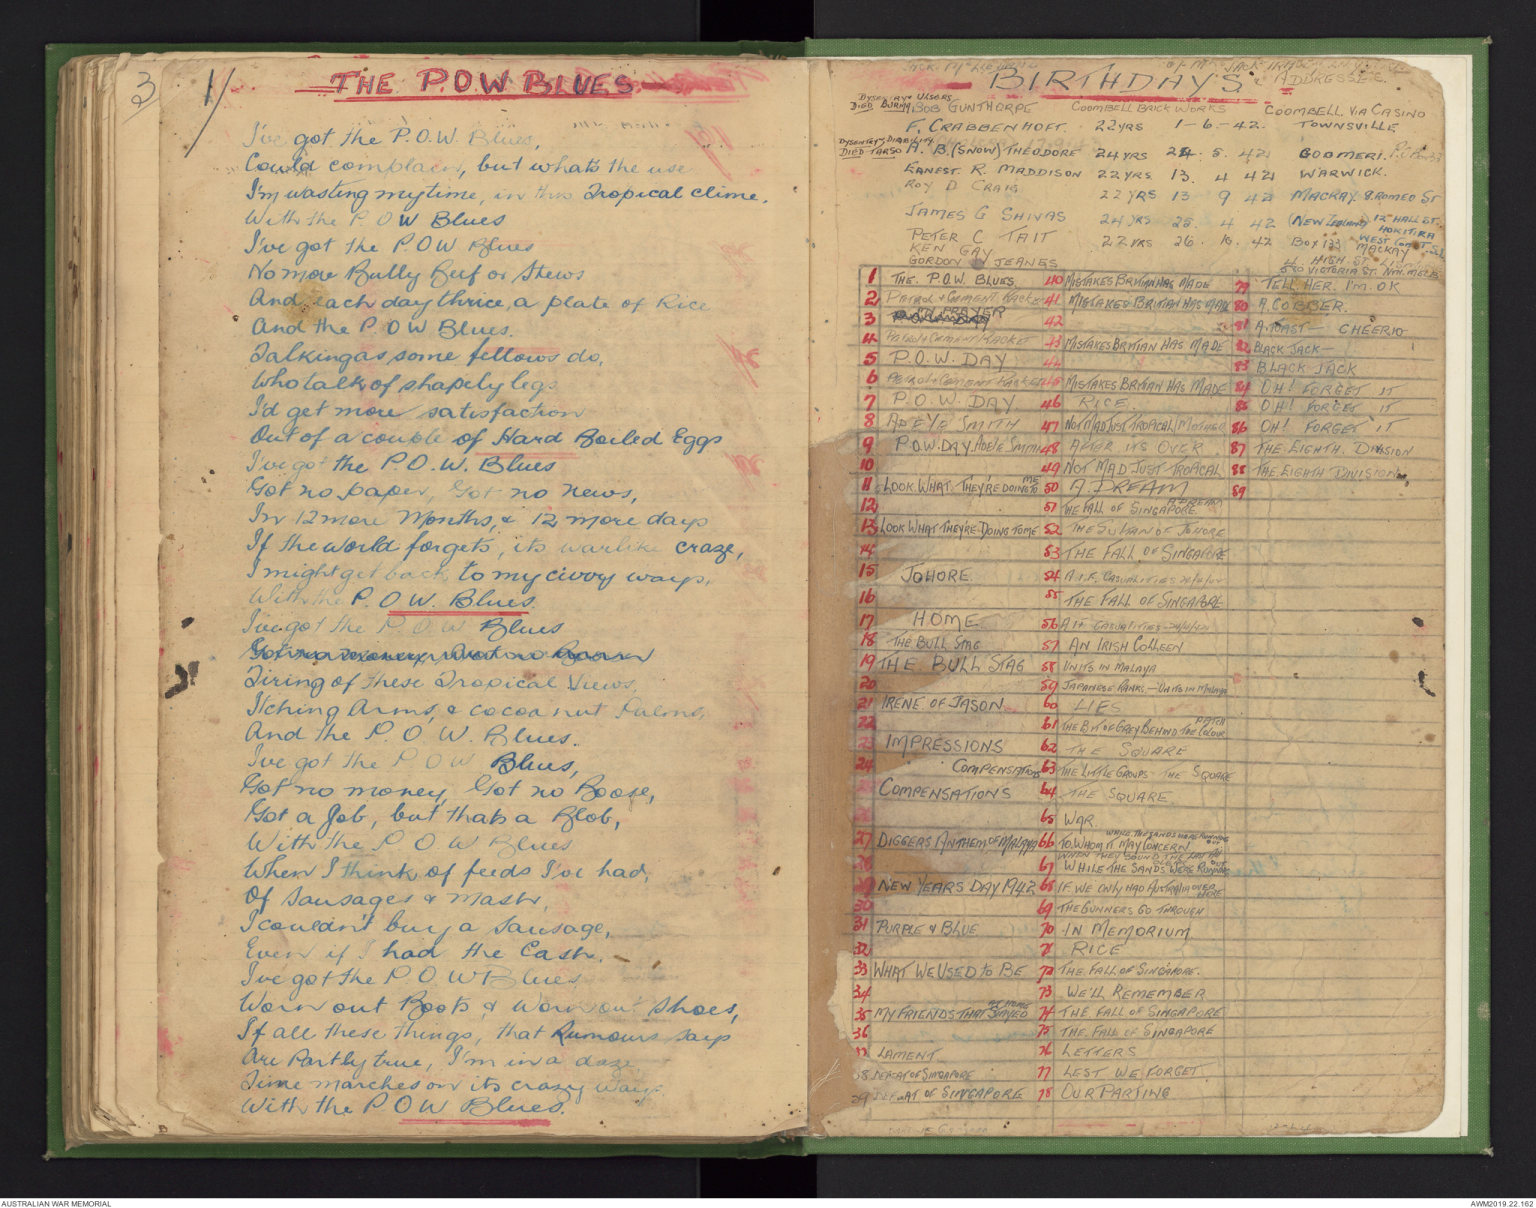 3
1/
THE P.O.W BLUES
I've got the P.O.W. Blues,
Could complain, but what's the use
I'm wasting my time, in this Tropical clime.
With the P O W Blues
I've got the P O W Blues
No more Bully Beef or Stews
And each day thrice, a plate of Rice
And the P. O W Blues.
Talking as some fellows do,
Who talk of shapely legs
I'd get more satisfaction
Out of a couple of Hard Boiled Eggs
I've got the P.O.W. Blues
Got no paper, Got no news,
In 12 more Months, & 12 more days
If the world forgets, its warlike craze,
I might get back to my civvy ways,
With the P.O.W. Blues.
I've got the P. O. W Blues
Got no money
Tiring of these Tropical Views,
Itching Arms, & cocoanut Palms,
And the P. O W. Blues.
I've got the P O W Blues,
Got no money, Got no Booze,
Got a Job, but thats a Blob,
With the P O W Blues
When I think of feeds I've had,
Of Sausages & Mash,
I couldn't buy a Sausage,
Even if I had the Cash.
I've got the P O W Blues
Worn out Boots & Worn out Shoes,
If all these things, that Rumours says
Are Partly true, I'm in a daze
Time marches on its crazy ways
With the P O W Blues.
BIRTHDAY'S &
ADDRESSES.
DYSENTRY & ULSERS
DIED BURMA BOB GUNTHORPE COOMBELL BRICK WORKS COOMBELL VIA CASINO
F. CRABBENHOFT. 22 YRS 1-6-42. TOWNSVILLE
DYSENTRY, DIABILITY
DIED TARSO A. B. (SNOW) THEODORE 24 YRS 24. 5. 42 GOOMERI.
EARNEST R. MADDISON 22 YRS 13. 4 42 WARWICK.
ROY D CRAIG 22 YRS 13 9 42 MACKAY. 9. ROMEO ST
JAMES G SHIVAS 24 YRS 25. 4 42 (NEW ZEALAND) 12 HALL ST. HOKITIKA WEST COAST. S.I.
PETER C TAIT 22 YRS 26. 42 BOX 123 MACKAY
KEN GAY 4 HIGH ST.
GORDON JEANES 580 VICTORIA ST. NTH. MELB
1 THE. P.O.W. BLUES
2 PETROL & CEMENT RACKET
3 PRAYER
4 PETROL & CEMENT RACKET
5 P.O.W. DAY
6 PETROL & CEMENT RACKET
7 P.O.W. DAY
8 ADEYE SMITH
9 P.O.W. DAY. ADEYE SMITH
10
11 LOOK. WHAT. THEY'RE DOING TO ME
12
13 LOOK WHAT THEY'RE DOING TO ME
14
15 JOHORE
16
17 HOME
18 THE BULL STAG
19 THE BULL STAG
20
21 IRENE OF JASON
22
23 IMPRESSIONS
24 COMPENSATIONS
COMPENSATIONS
27 DIGGERS ANTHEM OF MALAYA
28
29 NEW YEARS DAY 1942
30
31 PURPLE & BLUE
32
33 WHAT WE USED TO BE
34
35 MY FRIENDS THAT STAYED AT HOME
36
37 LAMENT
38 DEFEAT OF SINGAPORE
39 DEFEAT OF SINGAPORE
40 MISTAKES BRITIAN HAS MADE
41 MISTAKES BRITIAN HAS MADE
42
43 MISTAKES BRITIAN HAS MADE
44
45 MISTAKES BRITIAN HAS MADE
46 RICE
47 NOT MAD JUST TROPICAL / MOTHER
48 AFTER ITS OVER
49 NOT MAD JUST TROPICAL
50 A. DREAM
51 THE FALL OF SINGAPORE A DREAM
52 THE SULTAN OF JOHORE
53 THE FALL OF SINGAPORE
54 A.I.F. CASUALITIES
55 THE FALL OF SINGAPORE
56 A I F CASUALITIES
57 AN IRISH COLLEEN
58 UNITS IN MALAYA
59 JAPANESE RANKS - UNITS IN MALAYA
60 LIES
61 THE BIT OF GREY BEHIND THE COLOUR PATCH
62 THE SQUARE
63 THE LITTLE GROUPS THE SQUARE
64 THE SQUARE
65 WAR
66 TO. WHOM IT MAY CONCERN WHILE THE SANDS WERE RUNNING OUT
67 WHEN THEY SOUND THE LAST ALL CLEAR WHILE THE SANDS WERE RUNNING OUT
68 IF WE ONLY HAD AUSTRALIA OVER HERE
69 THE GUNNERS GO THROUGH
70 IN MEMORIUM
71 RICE
72 THE FALL OF SINGAPORE.
73 WE'LL REMEMBER
74 THE FALL OF SINGAPORE
75 THE. FALL OF SINGAPORE
76 LETTERS
77 LEST WE FORGET
78 OUR PARTING
79 TELL HER. I'M. OK
80 A. COBBER.
81 A. TOAST - CHEERIO
82 BLACK JACK -
83 BLACK JACK
84 OH! FORGET IT
85 OH! FORGET IT
86 OH! FORGET IT
87 THE EIGHTH. DIVISION
88 THE EIGHTH DIVISION
89
AUSTRALIAN WAR MEMORIAL
AWM2019.22.162